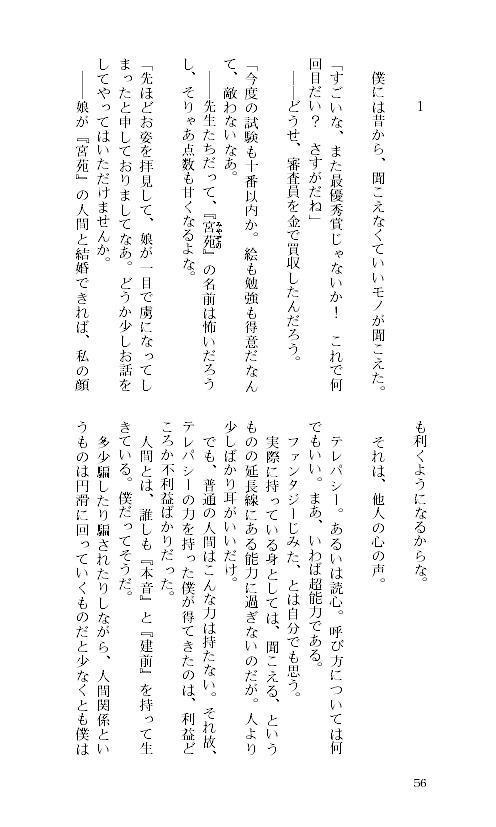 1
僕には昔から、聞こえなくていいモノが聞こえた。
「すごいな、また最優秀賞じゃないか！　これで何
回目だい？　さすがだね」
――どうせ、審査員を金で買収したんだろう。
「今度の試験も十番以内か。絵も勉強も得意だなん
て、敵わないなあ。
――先生たちだって、『宮苑』の名前は怖いだろう
し、そりゃあ点数も甘くなるよな。
「先ほどお姿を拝見して、娘が一目で虜になってし
まったと申しておりましてなあ。どうか少しお話を
してやってはいただけませんか。
――娘が『宮苑』の人間と結婚できれば、私の顔
も利くようになるからな。
それは、他人の心の声。
テレパシー。あるいは読心。呼び方については何
でもいい。まあ、いわば超能力である。
ファンタジーじみた、とは自分でも思う。
実際に持っている身としては、聞こえる、という
ものの延長線にある能力に過ぎないのだが。人より
少しばかり耳がいいだけ。
でも、普通の人間はこんな力は持たない。それ故、
テレパシーの力を持った僕が得てきたのは、利益ど
ころか不利益ばかりだった。
人間とは、誰しも『本音』と『建前』を持って生
きている。僕だってそうだ。
多少騙したり騙されたりしながら、人間関係とい
うものは円滑に回っていくものだと少なくとも僕は
56